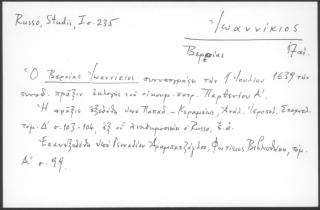 Russo, Studii, I σ. 235
Ἰωαννίκιος
Βεροίας 17 αἰ.
Ὁ Βερροίας Ἰωαννίκιος συνυπογράφει τὴν 1 Ἰουλίου 1639 τὴν
συνοδ. πρᾶξιν ἐκλογῆς τοῦ οἰκουμ. πατρ. Παρθενίου Α΄.
Ἡ πρᾶξις ἐξεδόθη ὑπὸ Παπαδ. - Κεραμέως, Ἀνάλ. Ἱεροσολ. Σταχυολ.
τόμ. Δ΄ σ. 103-104, ἐξ οὗ ἀναδημοσιεύει ὁ Russo, ἔ.ἀ.
Ἐπανεξεδόθη ὑπὸ Γενναδίου Ἀραμπατζόγλου, Φωτίειος Βιβλιοθήκη, τόμ.
Δ΄ σ. 99.